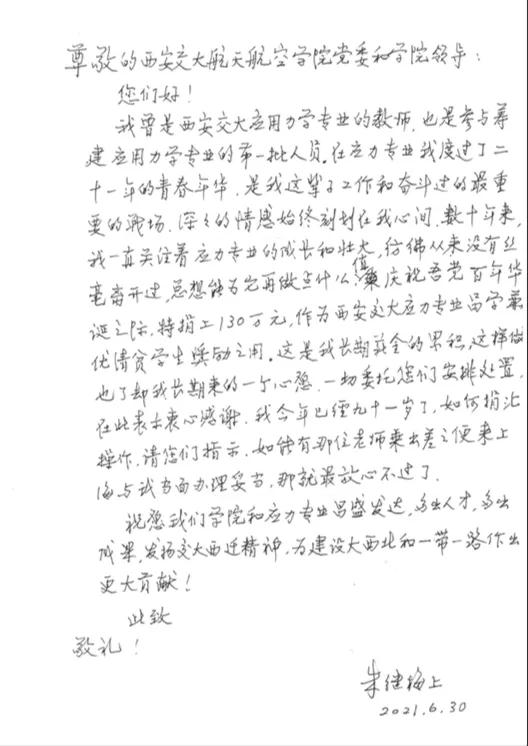 尊敬的西安交大航天航空学院党委和学院领导：
您们好！
我曾是西安交大应用力学专业的教师，也是参与筹
建应用力学专业的第一批人员。在应力专业我度过了二
十一年的青春年华，是我这辈子工作和奋斗过的最重
要的战场。深深的情感始终刻划在我心间。数十年来，
我一直关注着应力专业的成长和壮大，仿佛从来没有丝
毫离开过，总想能为它再做点什么。值此庆祝吾党百年华
诞之际，特捐上130万元，作为西安交大应力专业品学兼
优清贫学生奖励之用。这是我长期薪金的累积，这样做
也了却我长期来的一个心愿。一切委托您们安排处置，
在此表示衷心感谢。我今年已经九十一岁了，如何捐汇
操作，请您们指示。如能有那位老师乘出差之便来上
海与我当面办理妥当，那就最放心不过了。
祝愿我们学院和应力专业昌盛发达，多出人才，多出
成果，发扬交大西迁精神，为建设大西北和一带一路作出
更大贡献！
此致
敬礼！
朱继梅上
2021.6.30